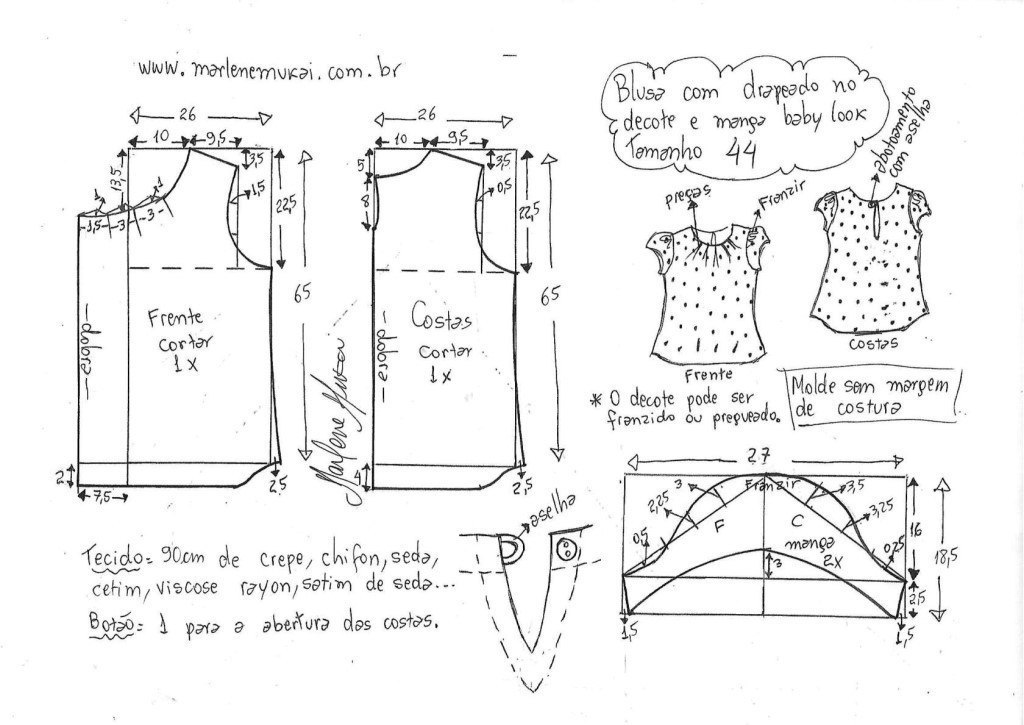 www.marlenemukai.com.br
Blusa com drapeado no
decote e manga baby look
Tamanho 44
abotoamento
com aselha
pregas
Franzir
Frente
costas
* O decote pode ser
franzido ou pregueado.
Molde sem margem
de costura
26
10
9,5
3,5
13,5
1
1
1,5
22,5
1,5
3
3
65
dobra
Frente
cortar
1x
2
7,5
2,5
26
10
9,5
5
3,5
8
0,5
22,5
65
dobra
Costas
cortar
1x
4
2,5
Marlene Mukai
27
Franzir
3
3,5
2,25
3,25
F
C
0,5
manga
2x
0,25
16
18,5
3
2,5
1,5
1,5
aselha
Tecido= 90cm de crepe, chifon, seda,
cetim, viscose rayon, satim de seda...
Botão= 1 para a abertura das costas.